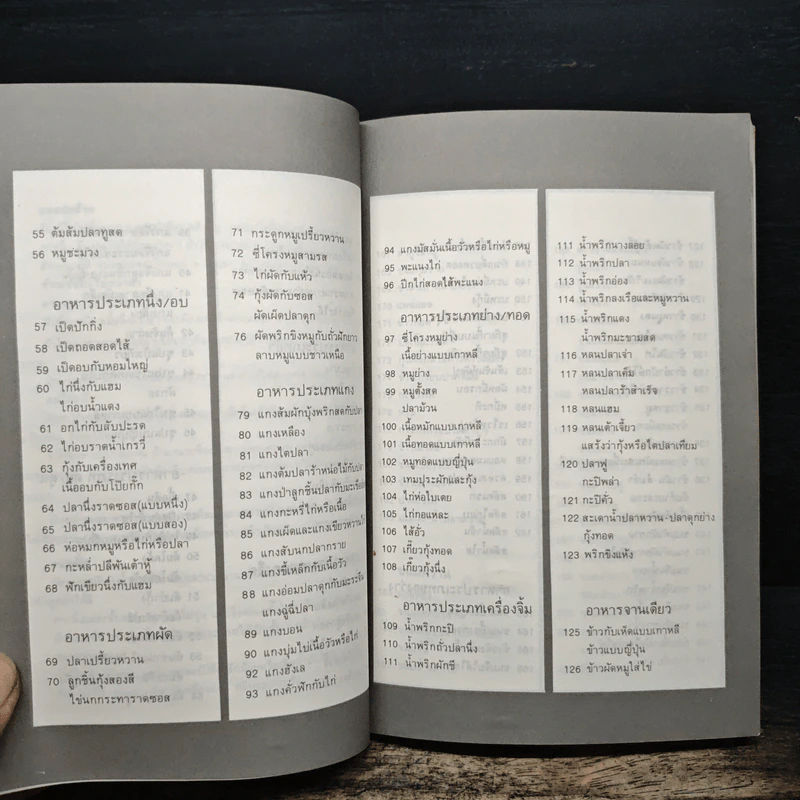 55 ต้มส้มปลาทูสด
56 หมูชะมวง
อาหารประเภทนึ่ง/อบ
57 เป็ดปักกิ่ง
58 เป็ดถอดสอดไส้
59 เป็ดอบกับหอมใหญ่
60 ไก่นึ่งกับแฮม
ไก่อบน้ำแดง
61 อกไก่กับสับปะรด
62 ไก่อบราดน้ำเกรวี่
63 กุ้งกับเครื่องเทศ
เนื้ออบกับโป๊ยกั๊ก
64 ปลานึ่งราดซอส(แบบหนึ่ง)
65 ปลานึ่งราดซอส(แบบสอง)
66 ห่อหมกหมูหรือไก่หรือปลา
67 กะหล่ำปลีพันเต้าหู้
68 ฟักเขียวนึ่งกับแฮม
อาหารประเภทผัด
69 ปลาเปรี้ยวหวาน
70 ลูกชิ้นกุ้งสองสี
ไข่นกกระทาราดซอส
71 กระดูกหมูเปรี้ยวหวาน
72 ซี่โครงหมูสามรส
73 ไก่ผัดกับแห้ว
74 กุ้งผัดกับซอส
ผัดเผ็ดปลาดุก
76 ผัดพริกขิงหมูกับถั่วฝักยาว
ลาบหมูแบบชาวเหนือ
อาหารประเภทแกง
79 แกงส้มผักบุ้งพริกสดกับปลา
80 แกงเหลือง
81 แกงไตปลา
82 แกงต้มปลาร้าหน่อไม้กับปลา
83 แกงป่าลูกชิ้นปลากับมะเขือ
84 แกงกะหรี่ไก่หรือเนื้อ
85 แกงเผ็ดและแกงเขียวหวาน
86 แกงสับนกปลากราย
87 แกงขี้เหล็กกับเนื้อวัว
88 แกงอ่อมปลาดุกกับมะระขี้น
แกงฉู่ฉี่ปลา
89 แกงบอน
90 แกงบุ่มไบ่เนื้อวัวหรือไก่
92 แกงฮังเล
93 แกงคั่วฟักกับไก่
94 แกงมัสมั่นเนื้อวัวหรือไก่หรือหมู
95 พะแนงไก่
96 ปีกไก่สอดไส้พะแนง
อาหารประเภทย่าง/ทอด
97 ซี่โครงหมูย่าง
เนื้อย่างแบบเกาหลี
98 หมูย่าง
99 หมูตั้งสด
ปลาม้วน
100 เนื้อหมักแบบเกาหลี
101 เนื้อทอดแบบเกาหลี
102 หมูทอดแบบญี่ปุ่น
103 เทมปุระผักและกุ้ง
104 ไก่ห่อใบเตย
105 ไก่กอแหละ
106 ไส้อั่ว
107 เกี๊ยวกุ้งทอด
108 เกี๊ยวกุ้งนึ่ง
อาหารประเภทเครื่องจิ้ม
109 น้ำพริกกะปิ
110 น้ำพริกถั่วปลานึ่ง
111 น้ำพริกผักชี
111 น้ำพริกนางลอย
112 น้ำพริกปลา
113 น้ำพริกอ่อง
114 น้ำพริกลงเรือและหมูหวาน
115 น้ำพริกแดง
น้ำพริกมะขามสด
116 หลนปลาเจ่า
117 หลนปลาเค็ม
หลนปลาร้าสำเร็จ
118 หลนแฮม
119 หลนเต้าเจี้ยว
แสร้งว่ากุ้งหรือไตปลาเทียม
120 ปลาฟู
กะปิพล่า
121 กะปิคั่ว
122 สะเดาน้ำปลาหวาน-ปลาดุกย่าง
กุ้งทอด
123 พริกขิงแห้ง
อาหารจานเดียว
125 ข้าวกับเห็ดแบบเกาหลี
ข้าวแบบญี่ปุ่น
126 ข้าวผัดหมูใส่ไข่